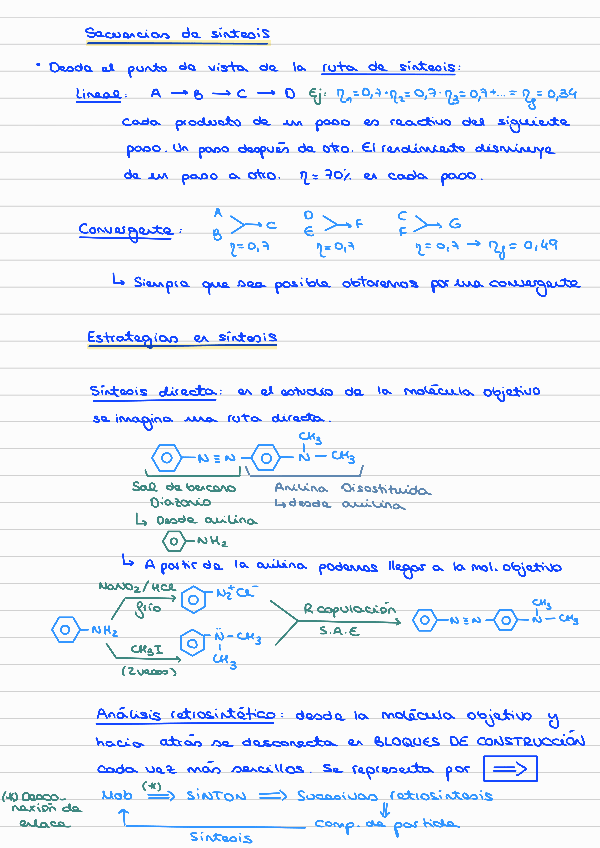 Secuencias de síntesis
• Desde el punto de vista de la ruta de síntesis:
Lineal: A → B → C → D Ej: η₁=0,7·η₂=0,7·η₃=0,7·...=η_g=0,34
Cada producto de un paso es reactivo del siguiente
paso. Un paso después de otro. El rendimiento disminuye
de un paso a otro. η = 70% en cada paso.
A D C
Convergente: → C → F → G
B E F
η=0,7 η=0,7 η=0,7 → η_g = 0,49
↳ Siempre que sea posible optaremos por una convergente
Estrategias en síntesis
Síntesis directa: en el estudio de la molécula objetivo
se imagina una ruta directa.
CH₃
N≡N N-CH₃
Sal de benceno Anilina Disustituida
Diazonio ↳ desde anilina
↳ Desde anilina
NH₂
↳ A partir de la anilina podemos llegar a la mol. objetivo
NaNO₂/HCl N₂⁺Cl⁻
frío
NH₂ R copulación N≡N N-CH₃
CH₃
S.A.E
CH₃I N̈-CH₃
(2 veces) CH₃
Análisis retrosintético: desde la molécula objetivo y
hacia atrás se desconecta en BLOQUES DE CONSTRUCCIÓN
cada vez más sencillos. Se representa por ⇒
(*) Desco- Mob (*)⇒ SINTON ⇒ Sucesivas retrosíntesis
nexión de ⇓
enlace comp. de partida
Síntesis